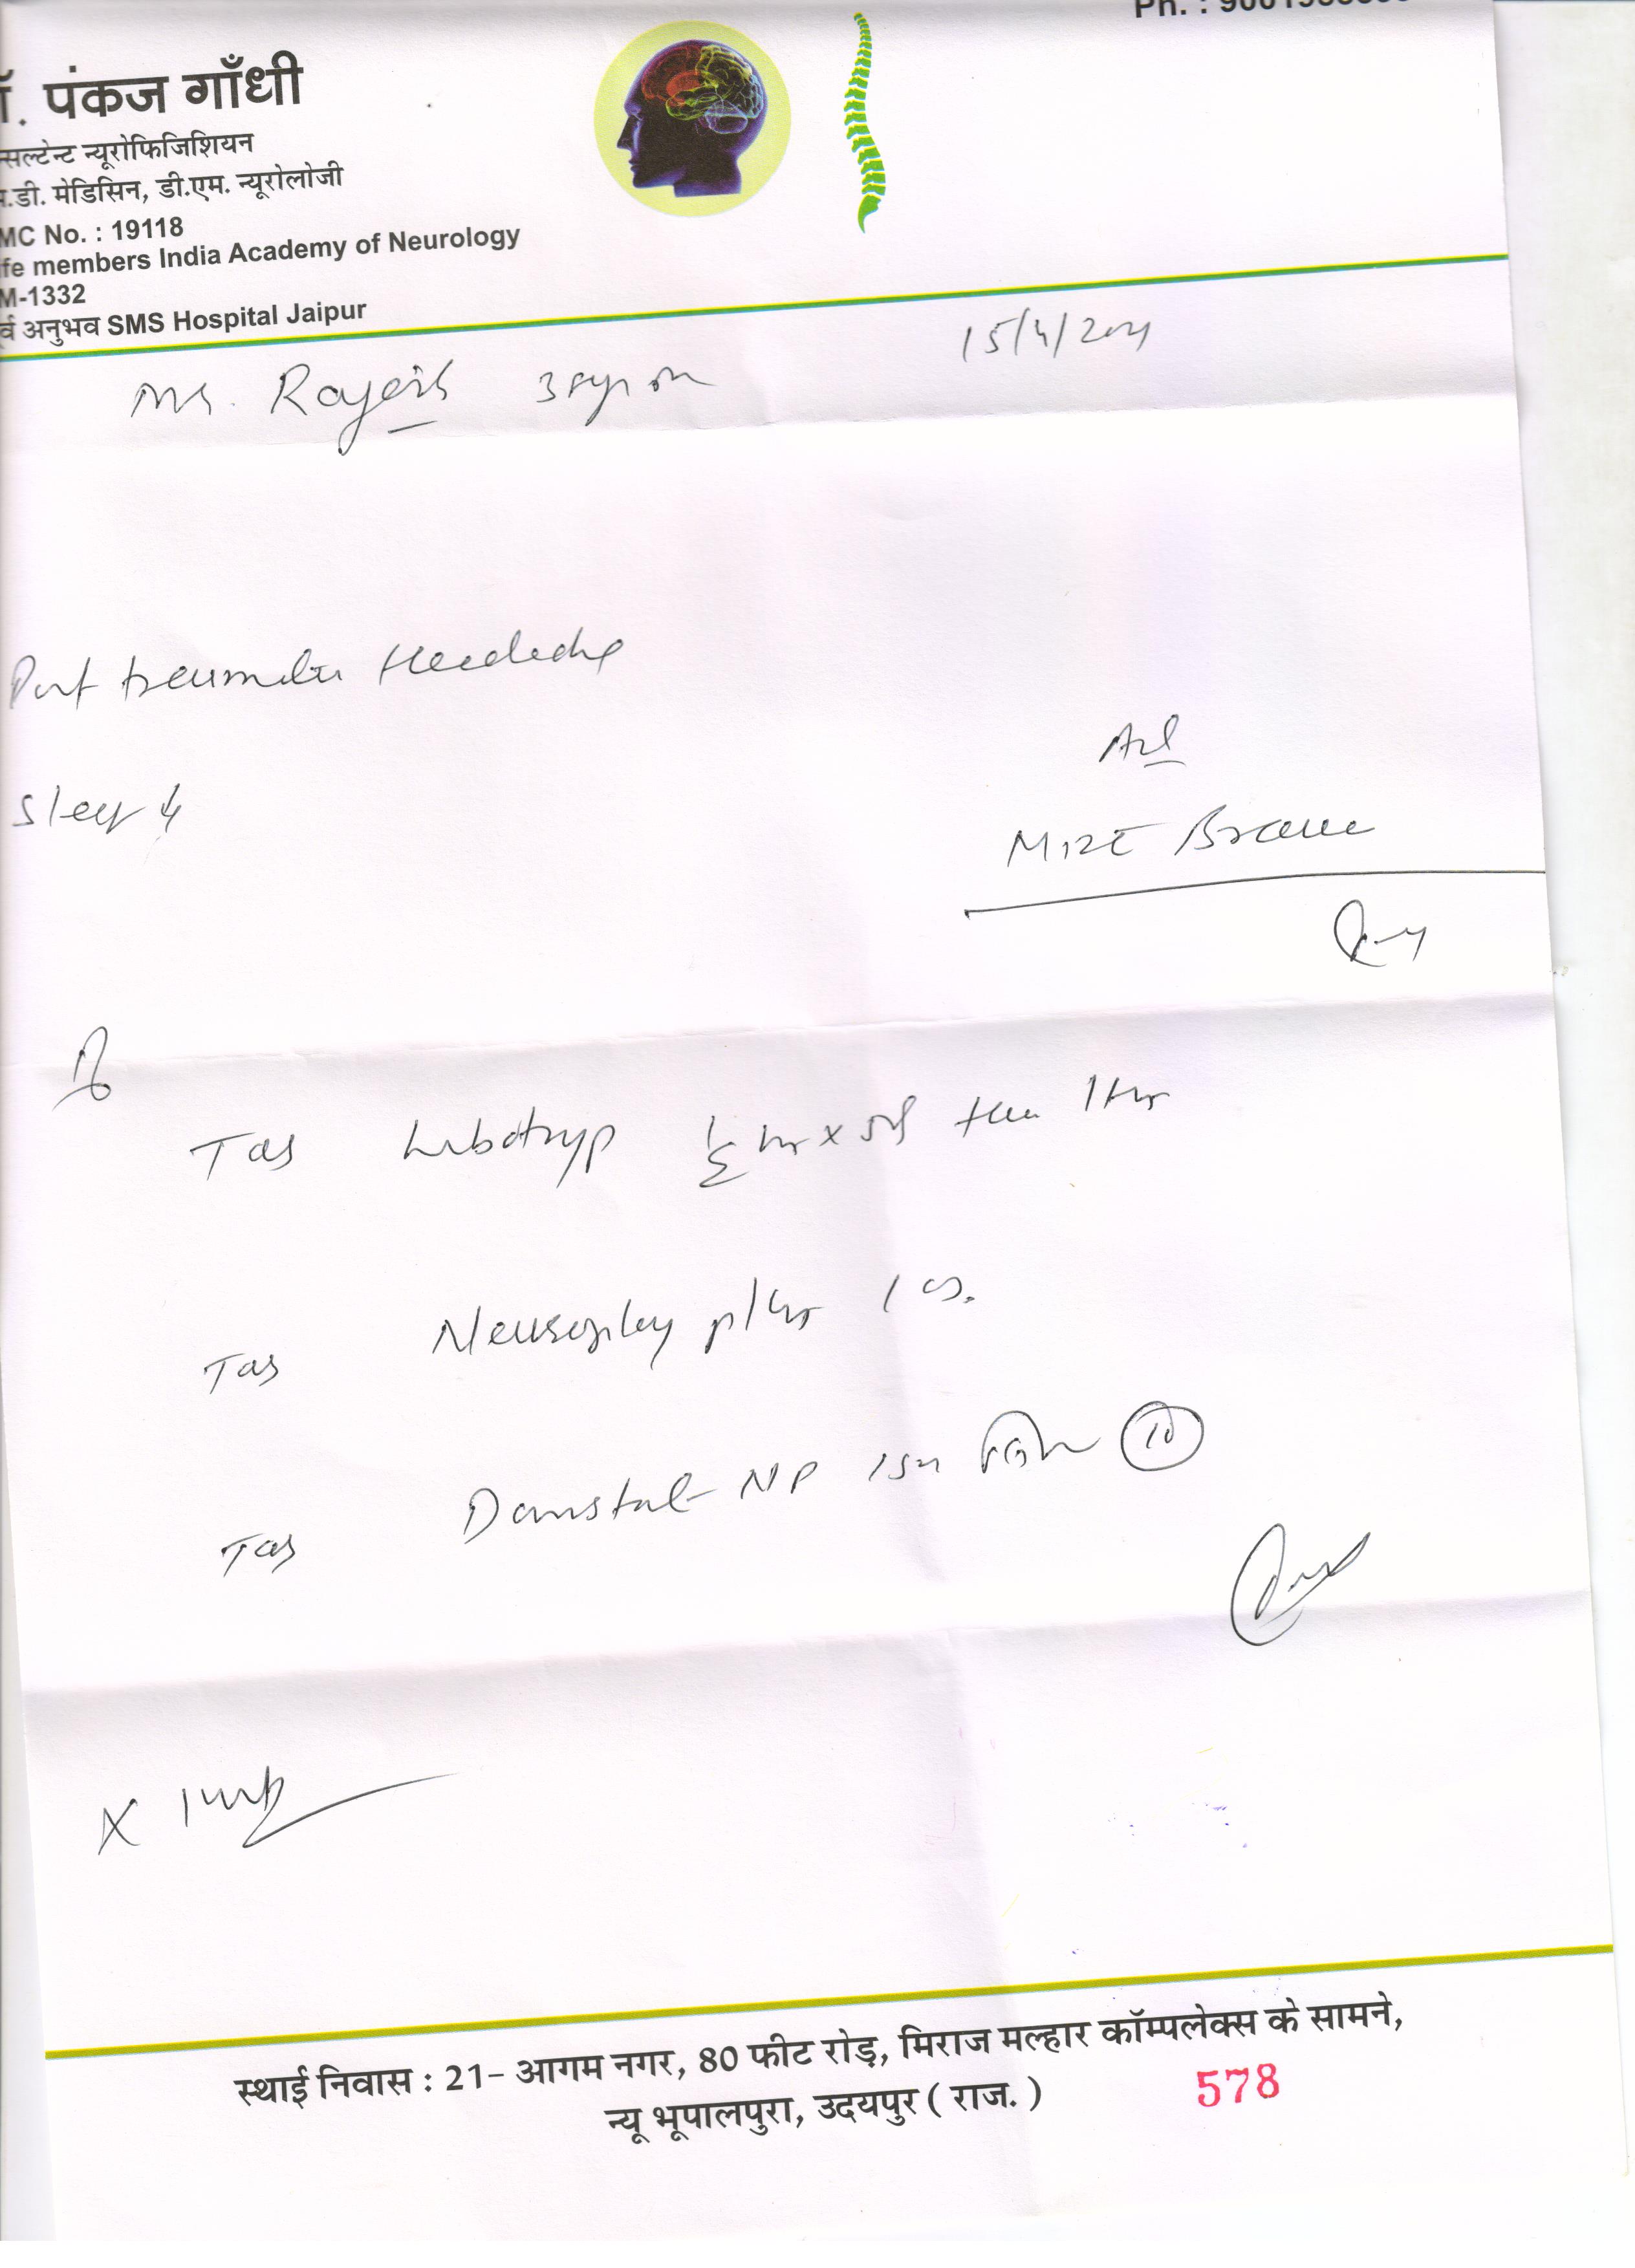 Ph. : 9001
. पंकज गाँधी
सल्टेन्ट न्यूरोफिजिशियन
.डी. मेडिसिन, डी.एम. न्यूरोलोजी
MC No. : 19118
fe members India Academy of Neurology
M-1332
र्व अनुभव SMS Hospital Jaipur
15/4/2021
Mr. Rajesh
Post traumatic Headache
Sleep ↓
Adv
MRI Brain
Rx
Tab 1/2 hs x 5d then 1 hs
Tab plus 1 OD.
Tab NP SOS 10
x 1 month
स्थाई निवास : 21- आगम नगर, 80 फीट रोड़, मिराज मल्हार कॉम्पलेक्स के सामने,
न्यू भूपालपुरा, उदयपुर ( राज. )
578